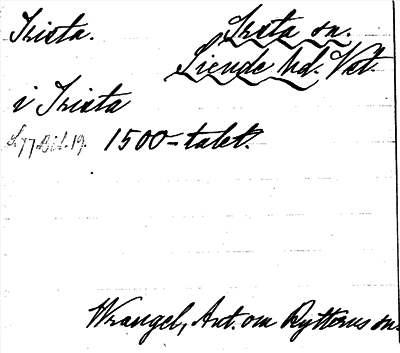 Irista. Irsta sn.
Siende hd. Vst.
i Irista
S. 77 Bil. 19. 1500-talet.
Wrangel, Ant. om Rytterns sn.